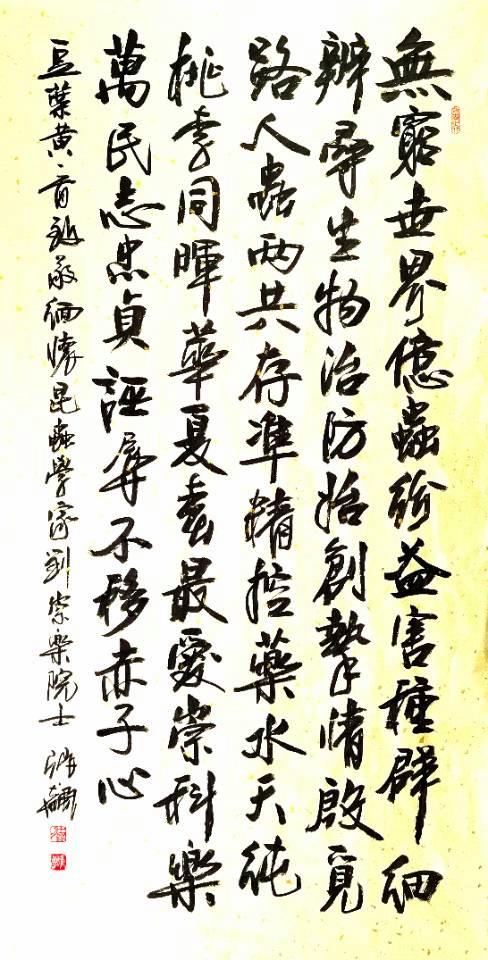 無窮世界億蟲紛益害種群細
辨尋生物治防始創摯情啟覓
路人蟲兩共存準精控藥水天純
桃李同暉華夏春最愛崇科樂
萬民志忠貞誣辱不移赤子心
豆葉黃·緬懷昆蟲學家劉崇樂院士